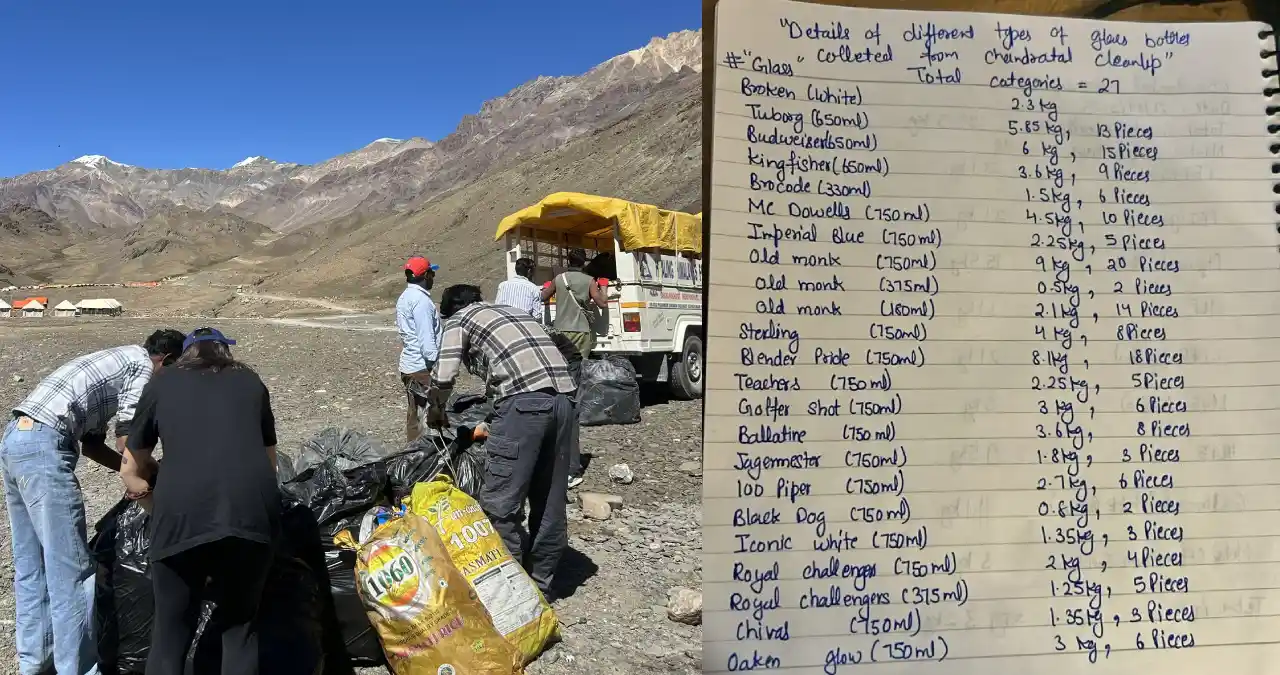 1060
1007
ASMATI
"Details of different types of glass bottles
colleted from chandratal cleanup"
#"Glass" Total categories = 27
Broken (white) 2.3 kg
Tuborg (650ml) 5.85 kg, 13 Pieces
Budweiser(650ml) 6 kg, 15 Pieces
kingfisher (650ml) 3.6 kg, 9 Pieces
Brocode (330ml) 1.5 kg, 6 Pieces
Mc Dowells (750ml) 4.5 kg, 10 Pieces
Imperial Blue (750ml) 2.25 kg, 5 Pieces
Old monk (750ml) 9 kg, 20 Pieces
old monk (375ml) 0.5 kg, 2 Pieces
old monk (180ml) 2.1 kg, 14 Pieces
Sterling (750ml) 4 kg, 8 Pieces
Blender Pride (750ml) 8.1 kg, 18 Pieces
Teachers (750ml) 2.25 kg, 5 Pieces
Golfer shot (750ml) 3 kg, 6 Pieces
Ballatine (750ml) 3.6 kg, 8 Pieces
Jagermester (750ml) 1.8 kg, 3 Pieces
100 Piper (750ml) 2.7 kg, 6 Pieces
Black Dog (750ml) 0.8 kg, 2 Pieces
Iconic white (750ml) 1.35 kg, 3 Pieces
Royal challenges (750ml) 2 kg, 4 Pieces
Royal challengers (375ml) 1.25 kg, 5 Pieces
Chivas (750ml) 1.35 kg, 3 Pieces
Oaken glow (750ml) 3 kg, 6 Pieces